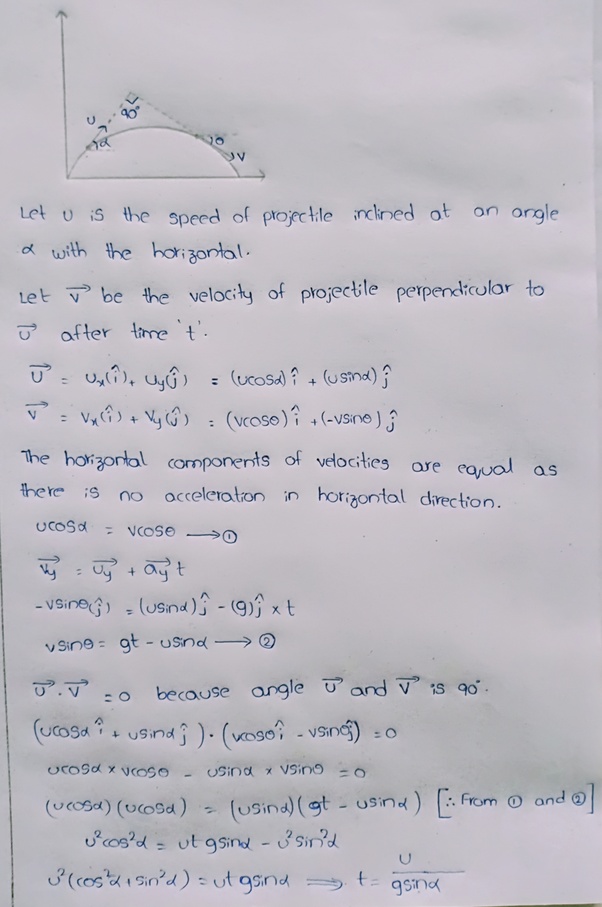 U
90°
α
θ
V
Let U is the speed of projectile inclined at an angle
α with the horizontal.
Let V⃗ be the velocity of projectile perpendicular to
U⃗ after time 't'.
U⃗ = Uₓ(î) + Uy(ĵ) = (ucosα) î + (usinα) ĵ
V⃗ = Vₓ(î) + Vy(ĵ) = (vcosθ) î + (-vsinθ) ĵ
The horizontal components of velocities are equal as
there is no acceleration in horizontal direction.
ucosα = vcosθ ⟶ ①
V⃗y = U⃗y + a⃗y t
-vsinθ(ĵ) = (usinα)ĵ - (g)ĵ × t
vsinθ = gt - usinα ⟶ ②
U⃗ . V⃗ = 0 because angle U⃗ and V⃗ is 90°.
(ucosα î + usinα ĵ) . (vcosθ î - vsinθ ĵ) = 0
ucosα × vcosθ - usinα × vsinθ = 0
(ucosα)(ucosα) = (usinα)(gt - usinα) [∴ From ① and ②]
u²cos²α = ut gsinα - u²sin²α
u²(cos²α + sin²α) = ut gsinα ⟹ t = U / gsinα